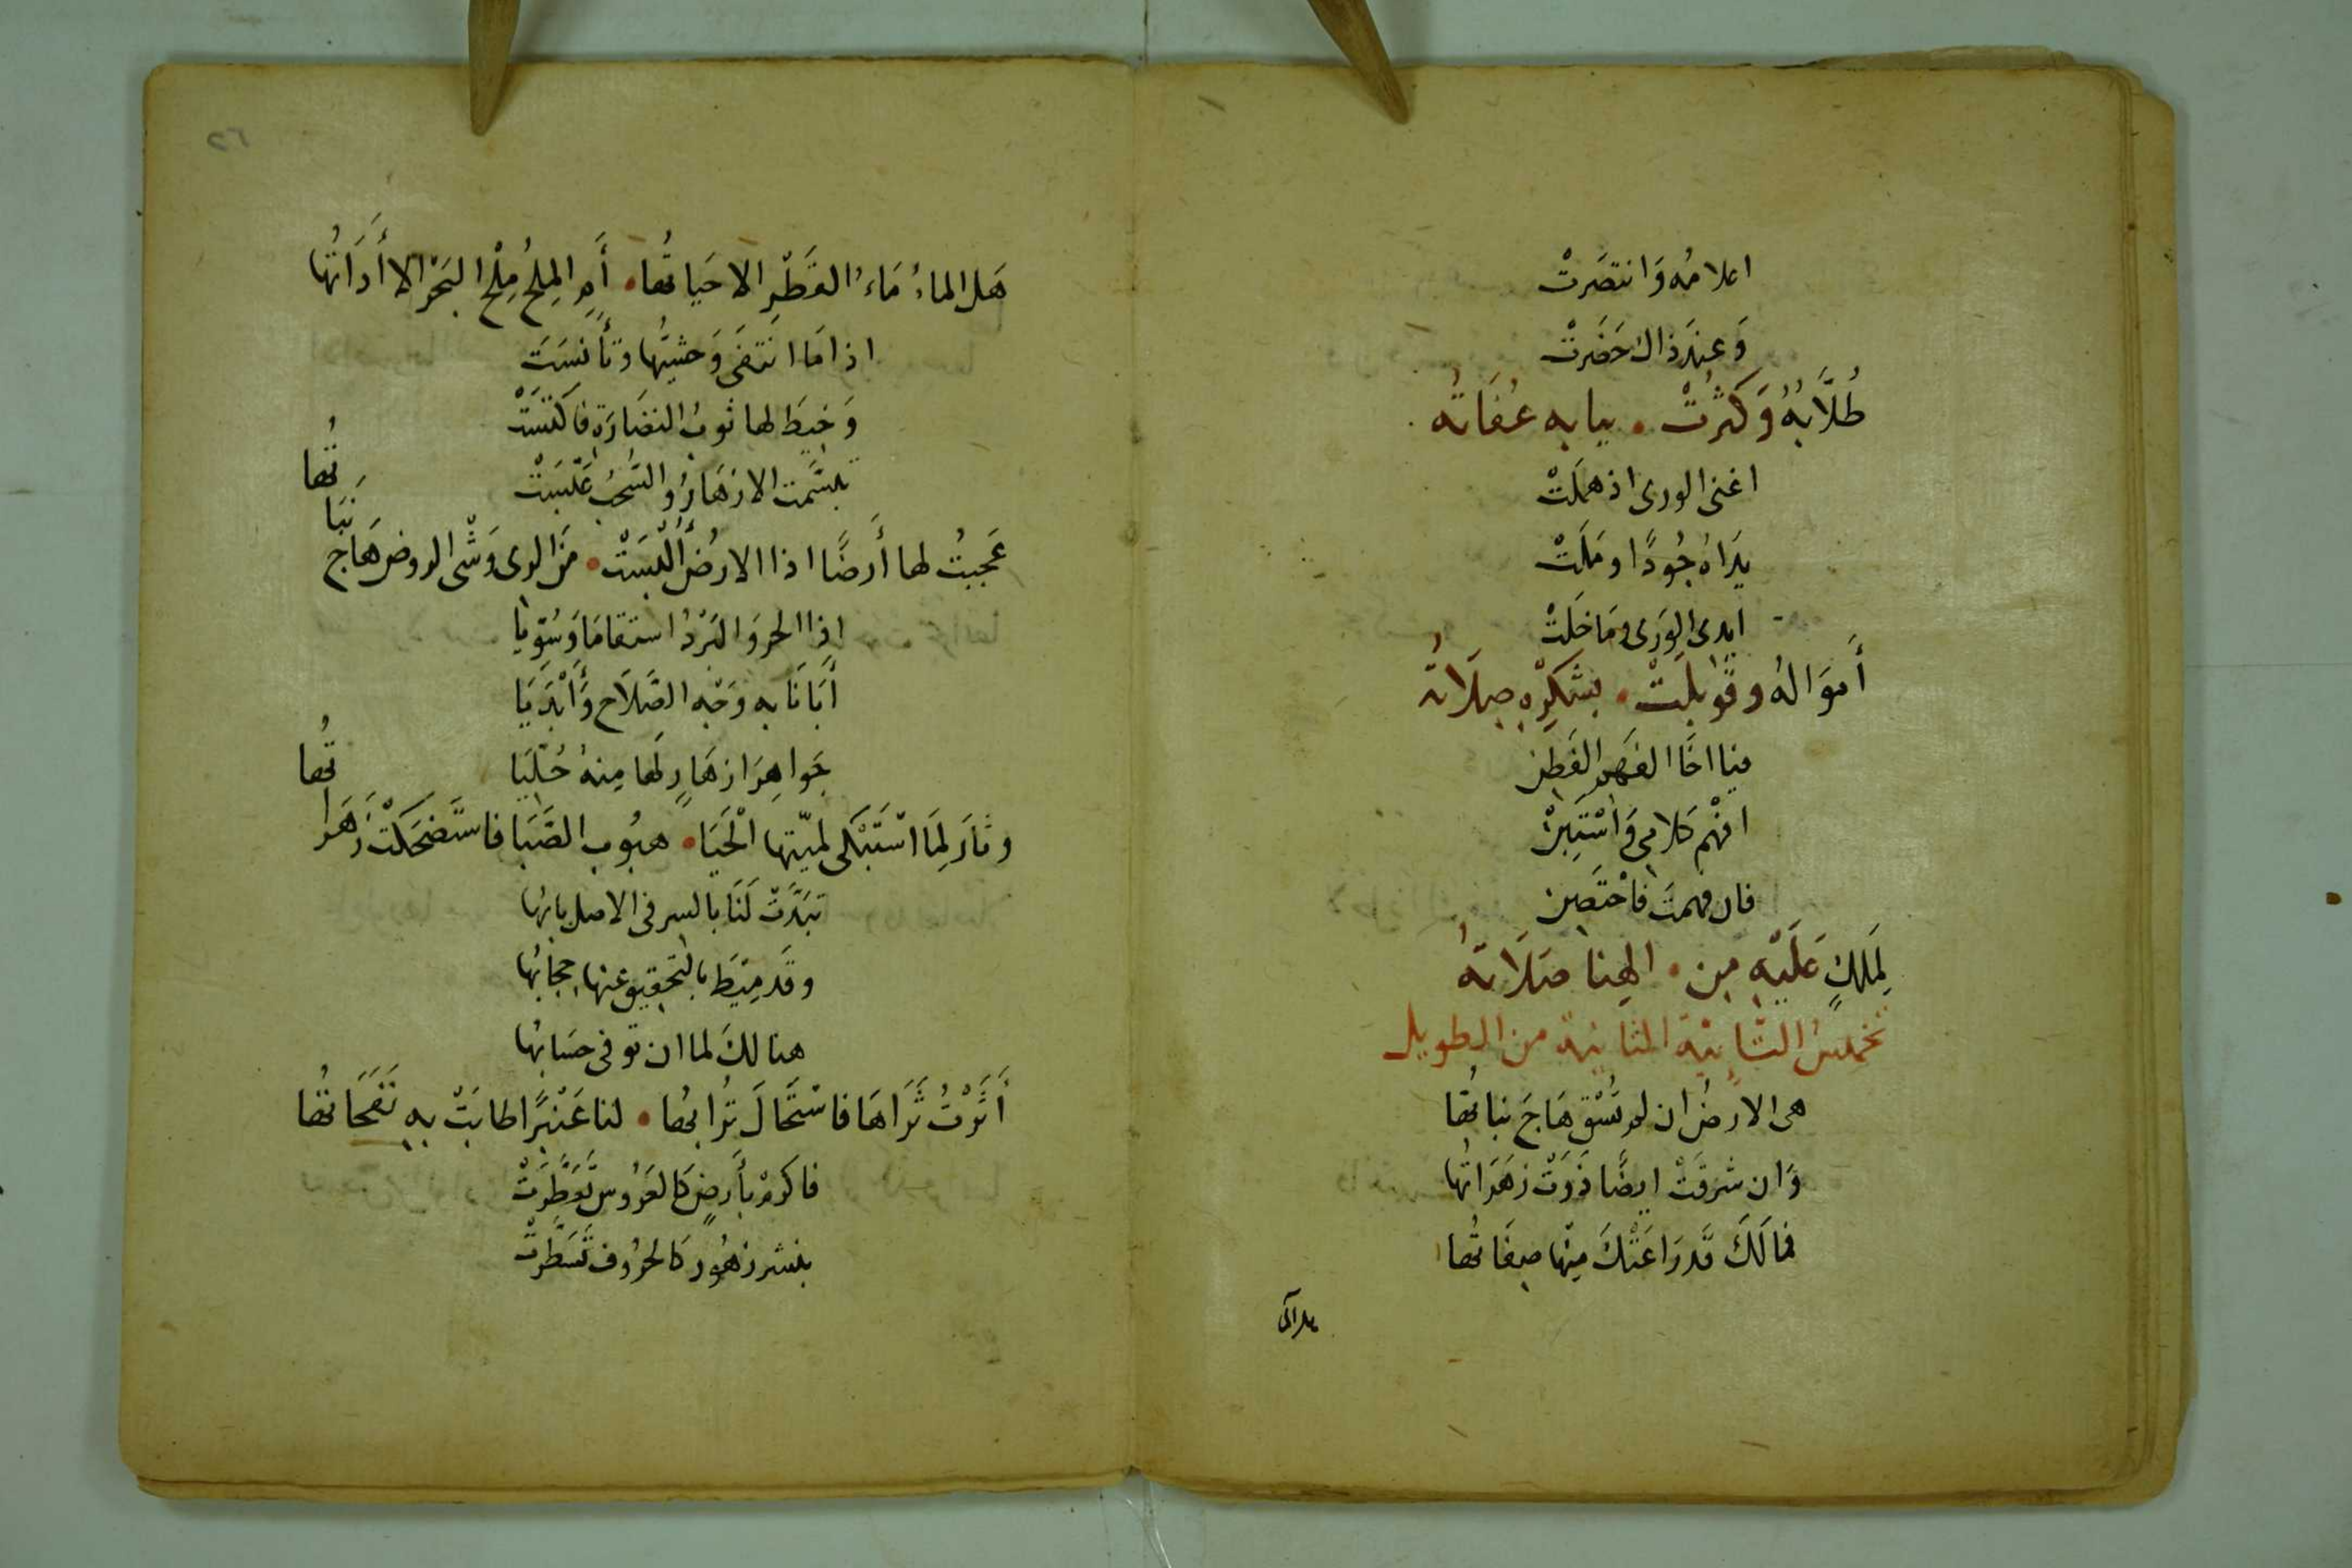 اعلامُه وَانتصَرتْ
وَعِندَ ذاك حَضَرتْ
طُلَّابُهُ وَكثُرتْ . ببابه عُفَاتُه
اغنى الورى اذ همَلتْ
يَدَاهُ جُودًا ومَلَتْ
ايدى الوَرى ومَا خَلتْ
أموَالهُ وقُوبلَتْ . بشكرِه صِلَاتُه
فيا اخَا الفَهم الفَطِن
افْهم كلامي وَاسْتَبِنْ
فان فهمتَ فاختَصِرن
لِمَلكٍ عَلَيْهِ مِن . الهِنا صَلَاتهُ
تخميسُ التَّائيّة الثانية من الطويل
هى الارضُ ان لم تُسْق هَاجَ نباتُها
وَان شرقَتْ ايضًا ذَوَتْ زهَرَاتُها
فمالَكَ قد رَاعَتْكَ مِنْها صِفَاتُها
هل الما
٢٦
هَل الماءُ مَاءُ القَطْرِ الاحَياتُها . أَمِ المِلحُ مِلْحُ البَحْر الا أَدَاتُها
اذا مَا انتفَى وَحشيُّها وتأنسَتَ
وَخِيطَ لها ثوبُ النضَارَة فاكتسَتْ
تبسَّمت الازهَارُ والسُّحْبُ عَبَسَتْ
عَجبتُ لها أَرضًا اذا الارضُ أُلْبسَتْ . مَن الوى وَشْى الروض هَاج نَبَاتُها
اذا الحر وَالبَرْدُ استقامَا وَسُوّيا
أبَانَا به وَجْه الصَّلَاح وَأَبْدَيَا
جَواهِرَ ازهَارٍ لهَا مِنهُ حُلّيَا
وثَارَ لِمَا اسْتَبْكى لميّتها الْحَيَا . هبُوب الصَّبَا فاسْتَضحَكَتْ زَهَراتُها
تبَدَّتْ لَنَا بالسر فى الاصل بابُها
وقَد مِيَطَ بالتحقيق عنها حِجَابُها
هنالكَ لما ان توفى حسَابُها
أَثَرْتُ ثَرَاهَا فاسْتَحَالَ تُرابُها . لنا عَنْبرًا طابَتْ بهِ نَفَحَاتُها
فاكرمْ بأَرضٍ كَالعَرُوس تَعَطَّرَتْ
بنشر زهُور كَالحرُوف تَسَطَّرتْ